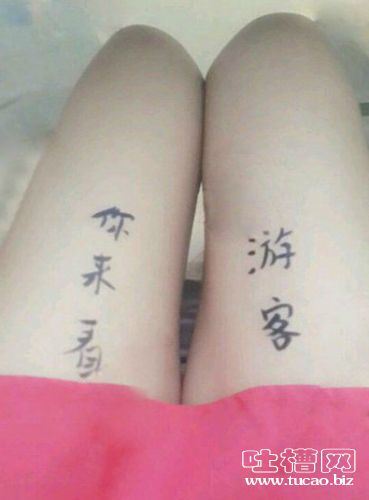 你来看
游客
吐槽网
www.tucao.biz